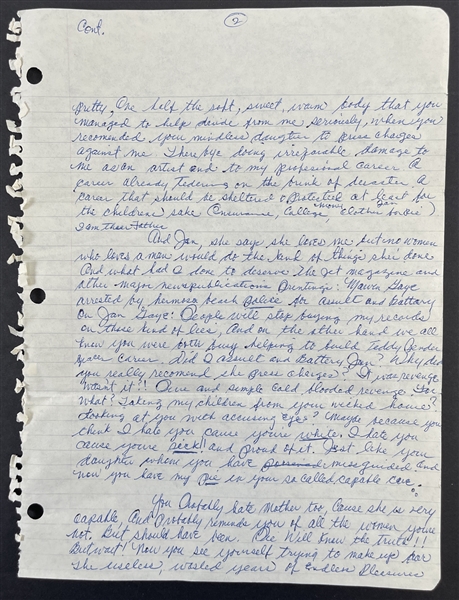 Cont.
2
pretty. One help the soft, sweet, warm body that you
managed to help devide from me seriously, when you
recomended your mindless daugter to press charges
against me. There bye doing irreparable damage to
me as an artist and to my profesional career. A
career already tedering on the brink of decaster. A
career that should be sheltered & protected at least for
the children sake (insurance, College, clothes)
I am their Father
And Jan, she says she loves me but no women
who loves a man would do the kind of things she's done.
And what had I done to deserve the Jet magazine and
other major news publications printing: Marvin Gaye
arrested by hermosa beach police for assult and Battary
on Jan Gaye! People will stop buying my records
on those kind of lies, And on the other hand we all
know you were both busy helping to build Teddy
career. Did I assult and Battery Jan? Why did
you really recommend she press charges? It was revenge
wasnt it!! Pure and simple cold blooded revenge. For
what? Taking my children from your wicked house?
Looking at you with accusing eyes? Maybe because you
think I hate you cause you're white. I hate you
cause you're sick!! and proud of it. Just like your
daughter whom you have misguided and
now you have my in your so called capable care.
You Probably hate Mother too, cause she is very
capable, And Probably reminds you of all the women you're
not, but should have been. One will know the truth!!
But wait! Now you see yourself trying to make up for
the useless, wasted years of endless pleasures